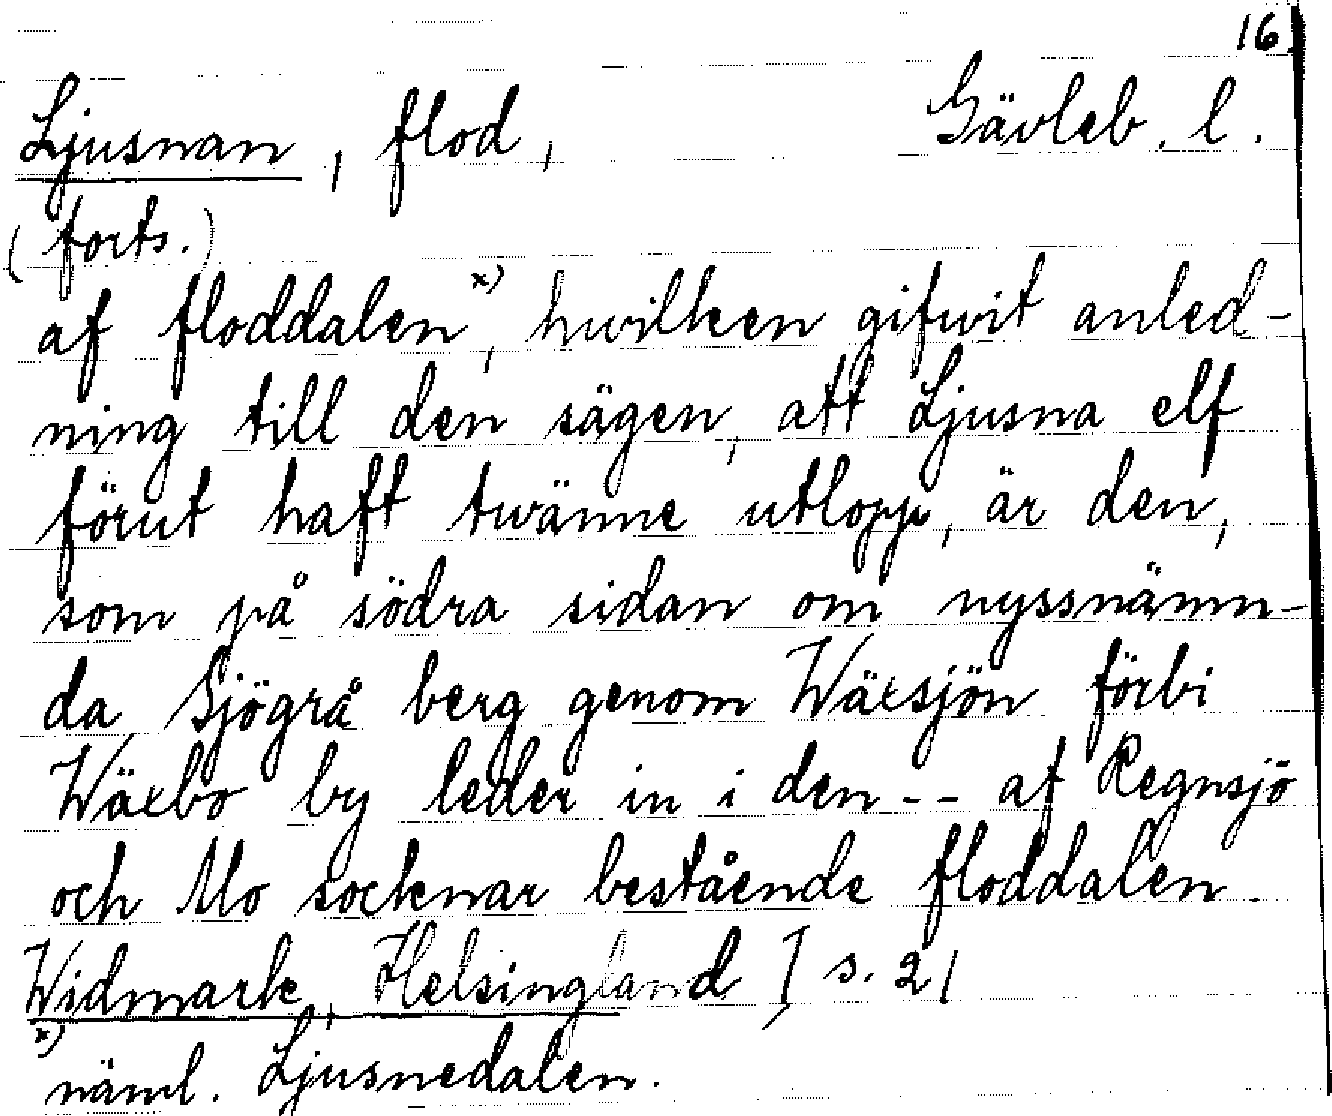 16
Ljusnan, flod, Gävleb. l.
(forts.)
af floddalen x), hvilken gifvit anled-
ning till den sägen, att Ljusna elf
förut haft tvänne utlopp, är den,
som på södra sidan om nyssnämn-
da Sjögrå berg genom Wäxsjön förbi
Wäxbo by leder in i den -- af Regnsjö
och Mo socknar bestående floddalen
Widmark, Helsingland I s. 21
x)
näml. Ljusnedalen.